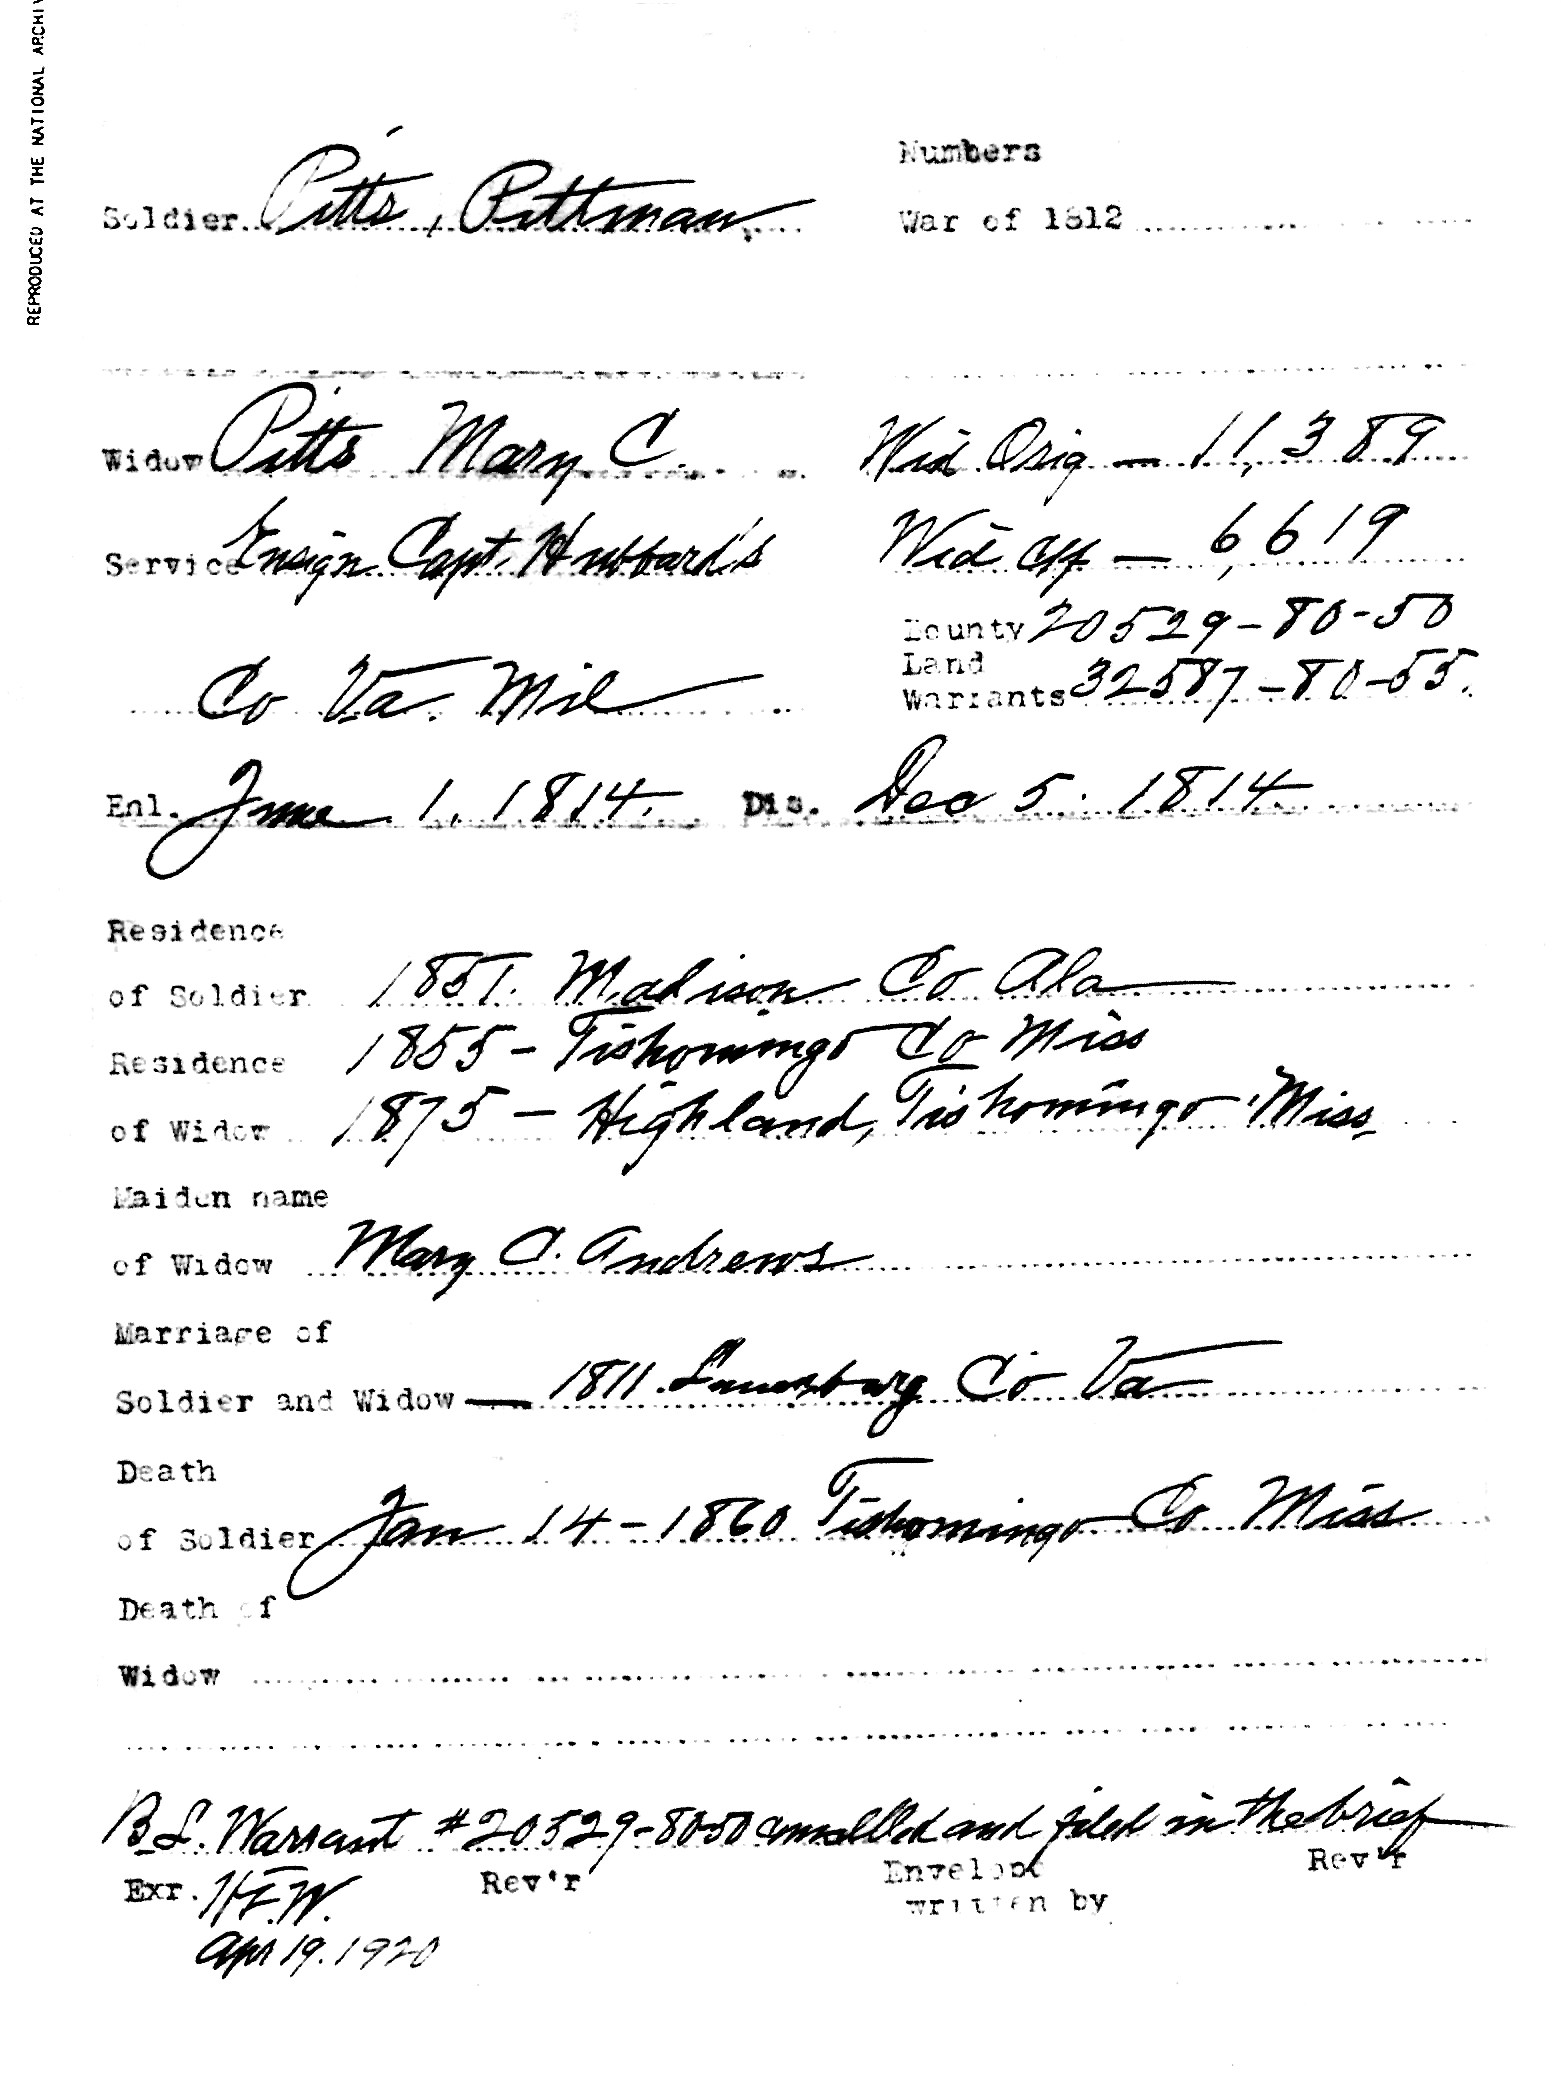 REPRODUCED AT THE NATIONAL ARCHIV
Numbers
Soldier Pitts, Pittman War of 1812
Widow Pitts Mary C. Wid Orig — 11,389
Service Ensign Capt. Hubbard's Wid Cf — 6,619
Bounty 20529-80-50
Land
Co Va. Mil Warrants 32587-80-55.
Enl. June 1, 1814. Dis. Dec 5. 1814.
Residence
of Soldier 1851. Madison Co Ala
Residence 1855 - Tishomingo Co Miss
of Widow 1875 - Highland, Tishomingo Miss,
Maiden name
of Widow Mary C. Andrews
Marriage of
Soldier and Widow — 1811. Co Va
Death
of Soldier Jan 14-1860 Tishomingo Co Miss
Death of
Widow
B L. Warrant #20529-8050 cancelled and filed in the brief
Exr. H.E.W. Rev'r Envelope Rev'r
written by
Apr 19. 1920